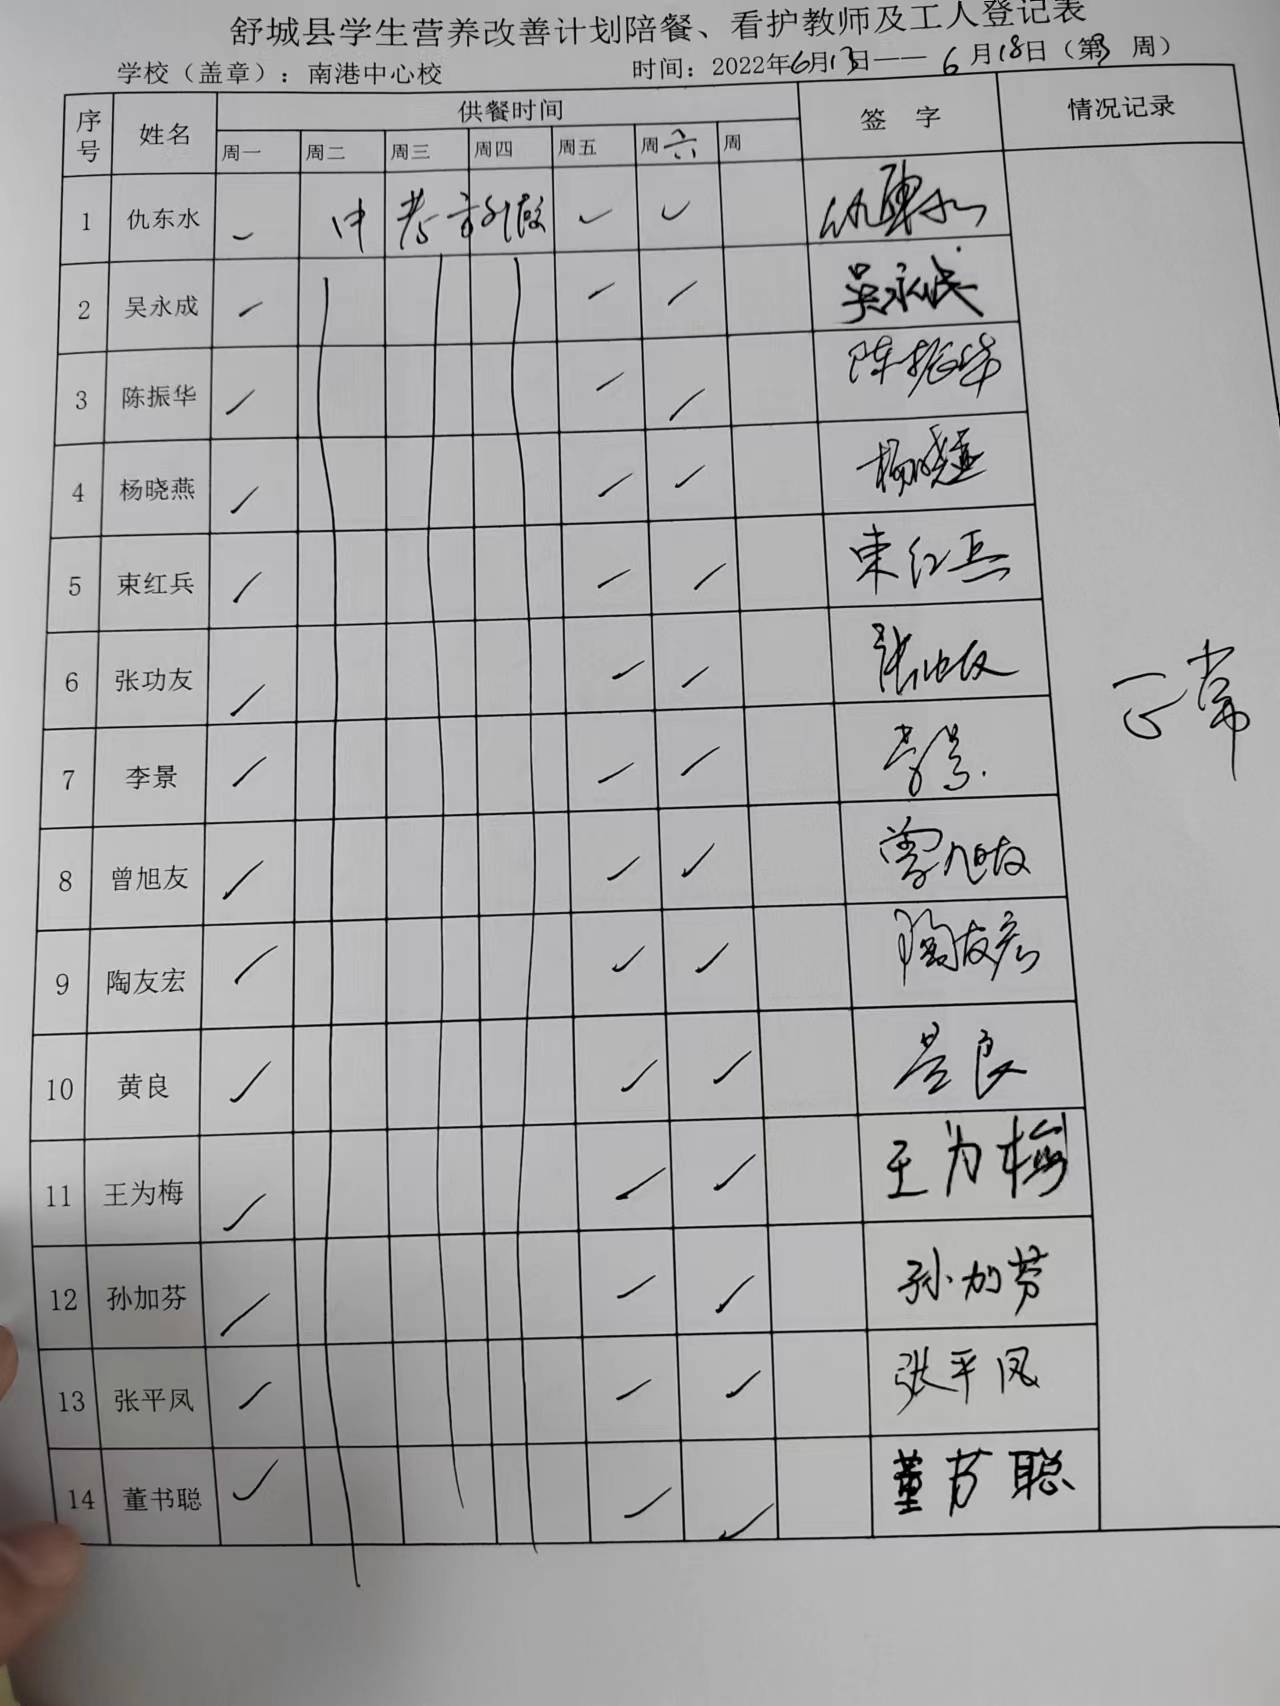 舒城县学生营养改善计划陪餐、看护教师及工人登记表
学校（盖章）：南港中心校 时间：2022年6月13日——6月18日（第 周）
序号 姓名 供餐时间 签 字 情况记录
周一 周二 周三 周四 周五 周六 周
1 仇东水 中考放假 仇东水
2 吴永成 吴永成
3 陈振华 陈振华
4 杨晓燕 杨晓燕
5 束红兵 束红兵
6 张功友 张功友
7 李景 李景
正常
8 曾旭友 曾旭友
9 陶友宏 陶友宏
10 黄良 黄良
11 王为梅 王为梅
12 孙加芬 孙加芬
13 张平凤 张平凤
14 董书聪 董书聪